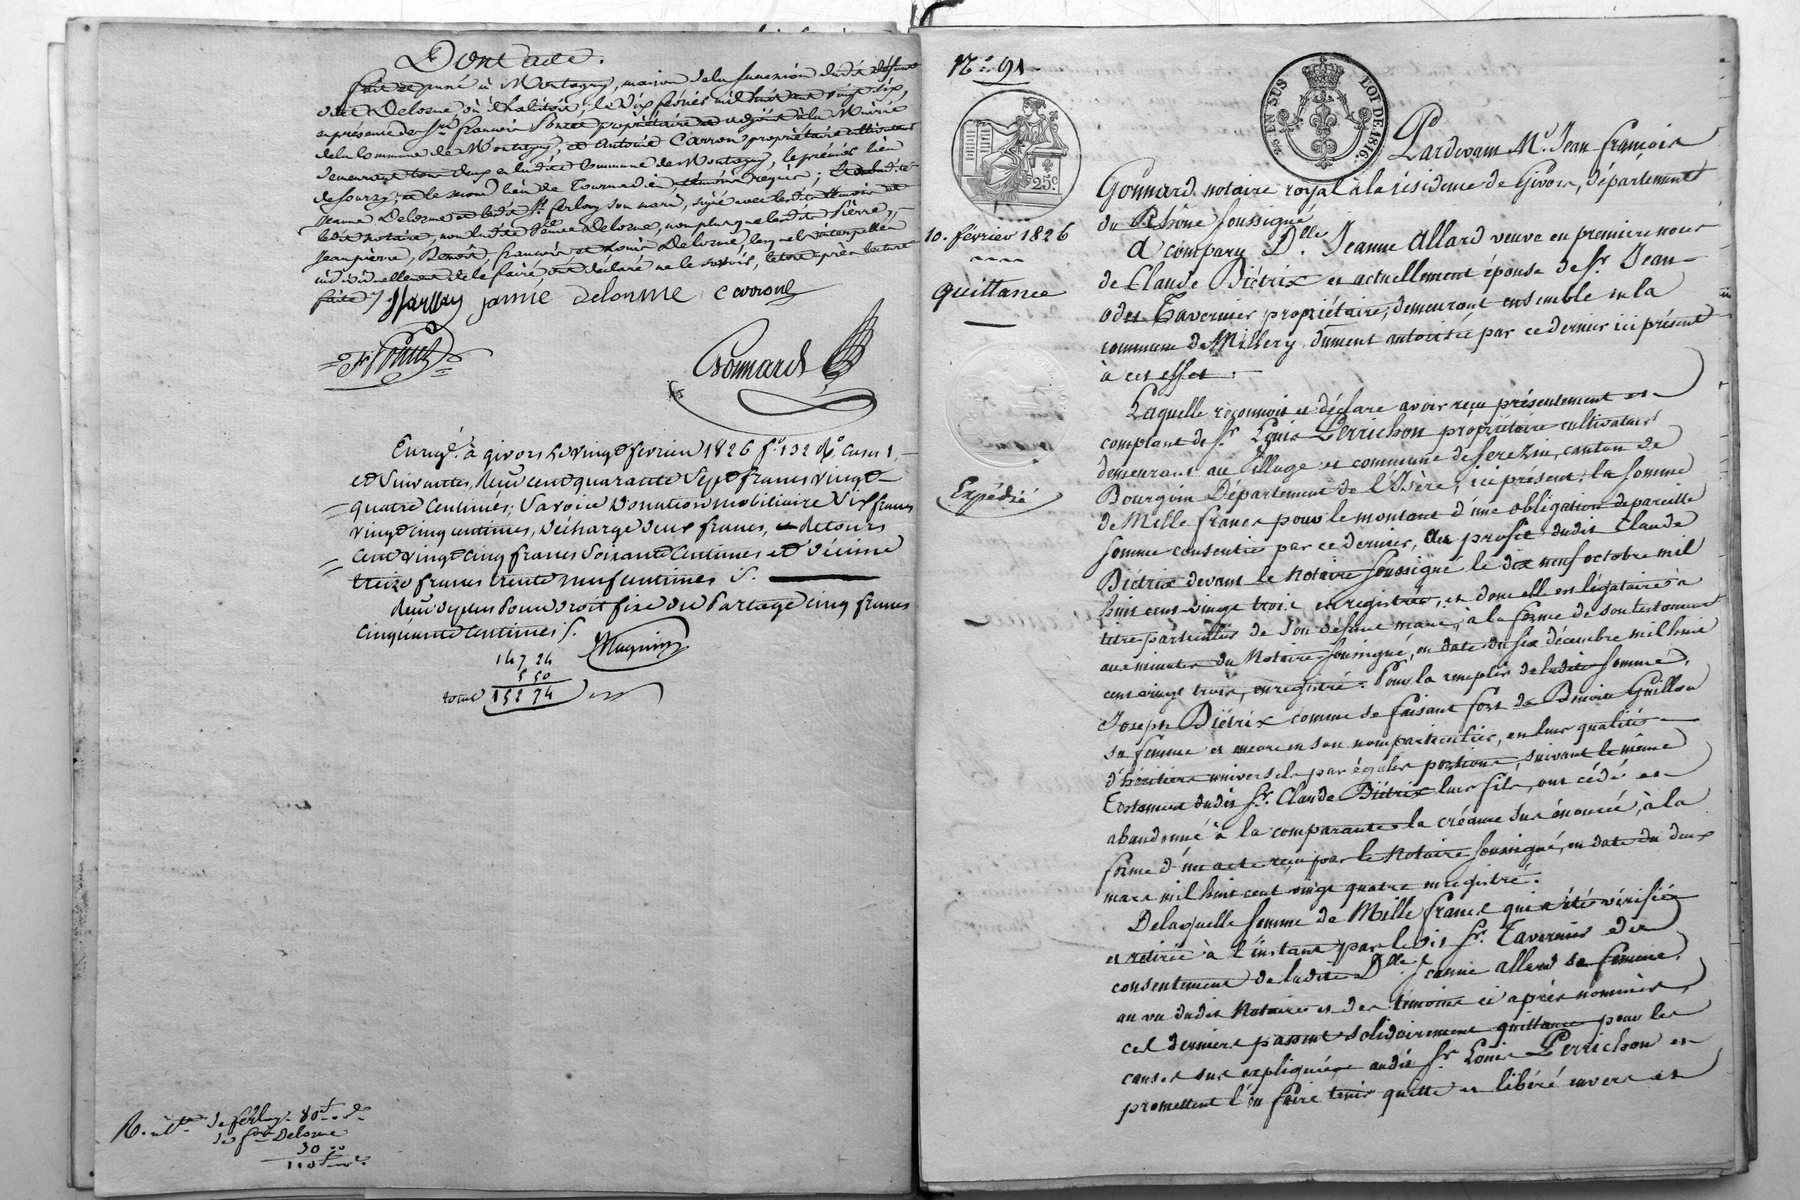 Dont acte.
fait et passé à Montagny, maison de la succession dudit défunt
Delorme, où il habitoit, le dix février mil huit cent vingt six,
en présence de Sr. françois Poncet propriétaire et adjoint à la Mairie
de la Commune de Montagny, et Antoine Carron propriétaire cultivateur
demeurant tous deux en ladite Commune de Montagny, le premier lieu
de Sourzy, et le second lieu de témoins requis; 
Jeanne Delorme et ledit Sr. ferlay son mari, signé avec lesdits témoins et
ledit notaire, non ladite Delorme, non plus que lesdits Pierre,
Jean pierre, Benoit, françois et Louis Delorme, lesquels interpellés
individuellement de le faire ont déclaré ne le savoir, lecture après lecture
faite /. ferlay janne delorme carron
f Poncet
Gonnard
Enregé. à givors le vingt février 1826 fo. 132 Ro. cases 1,
et Suivantes, Reçu cent quarante Sept francs vingt
quatre centimes; Savoir donation mobiliaire Six francs
vingt cinq centimes, décharge deux francs, et retours
cent vingt cinq francs Soixante Centimes et décime
treize francs trente neuf centimes /.
Reçu de plus pour droit fixe de Partage cinq francs
cinquante centimes /.
147 24
5 50
total 152 74
R. de ferlay 80f
des frs Delorme
30
110f
No. 91
25c.
2e. EN SUS
LOI DE 1816.
10. février 1826
quittance
Expédié
Pardevant Me. Jean françois
Gonnard notaire royal à la résidence de Givors, département
du Rhône soussigné
a comparu Dlle. Jeanne Allard veuve en première noces
de Claude Biétrix et actuellement épouse de Sr. Jean
Tavernier propriétaire, demeurant ensemble en la
commune de Millery, dument autorisée par ce dernier ici présent
à cet effet.
Laquelle reconnoit et déclare avoir reçu présentement et
comptant de Sr. Louis Perrichon propriétaire cultivateur
demeurant au village et commune de Serezin, canton de
Bourgoin Département de l'Isère, ici présent, la somme
de Mille francs pour le montant d'une obligation de pareille
somme consentie par ce dernier, au profit dudit Claude
Biétrix devant le Notaire soussigné le dix neuf octobre mil
huit cent vingt trois enregistrée, et dont elle est légataire à
titre particulier de son défunt mari, à la forme de son testament
aux minutes du Notaire soussigné, en date du six décembre mil huit
cent vingt trois, enregistré. Pour la remplir de ladite somme,
Joseph Biétrix comme se faisant fort de Benoite Guillon
sa femme et encore en son nom particulier, en leur qualités
d'héritiers universels par égales portions, suivant le même
Testament dudit Sr. Claude Biétrix leur fils, ont cédé et
abandonné à la comparante la créance sus énoncée, à la
forme d'un acte reçu par le Notaire soussigné, en date du deux
mars mil huit cent vingt quatre enregistré.
De laquelle somme de Mille francs qui a été vérifiée
et retirée à l'instant par ledit Sr. Tavernier et du
consentement de ladite Dlle. Jeanne allard sa femme,
au vu dudit Notaire et des témoins ci après nommés,
ces derniers passent solidairement quittance pour les
causes sus expliquées audit Sr. Louis Perrichon et
promettent l'en faire tenir quitte et libéré envers et